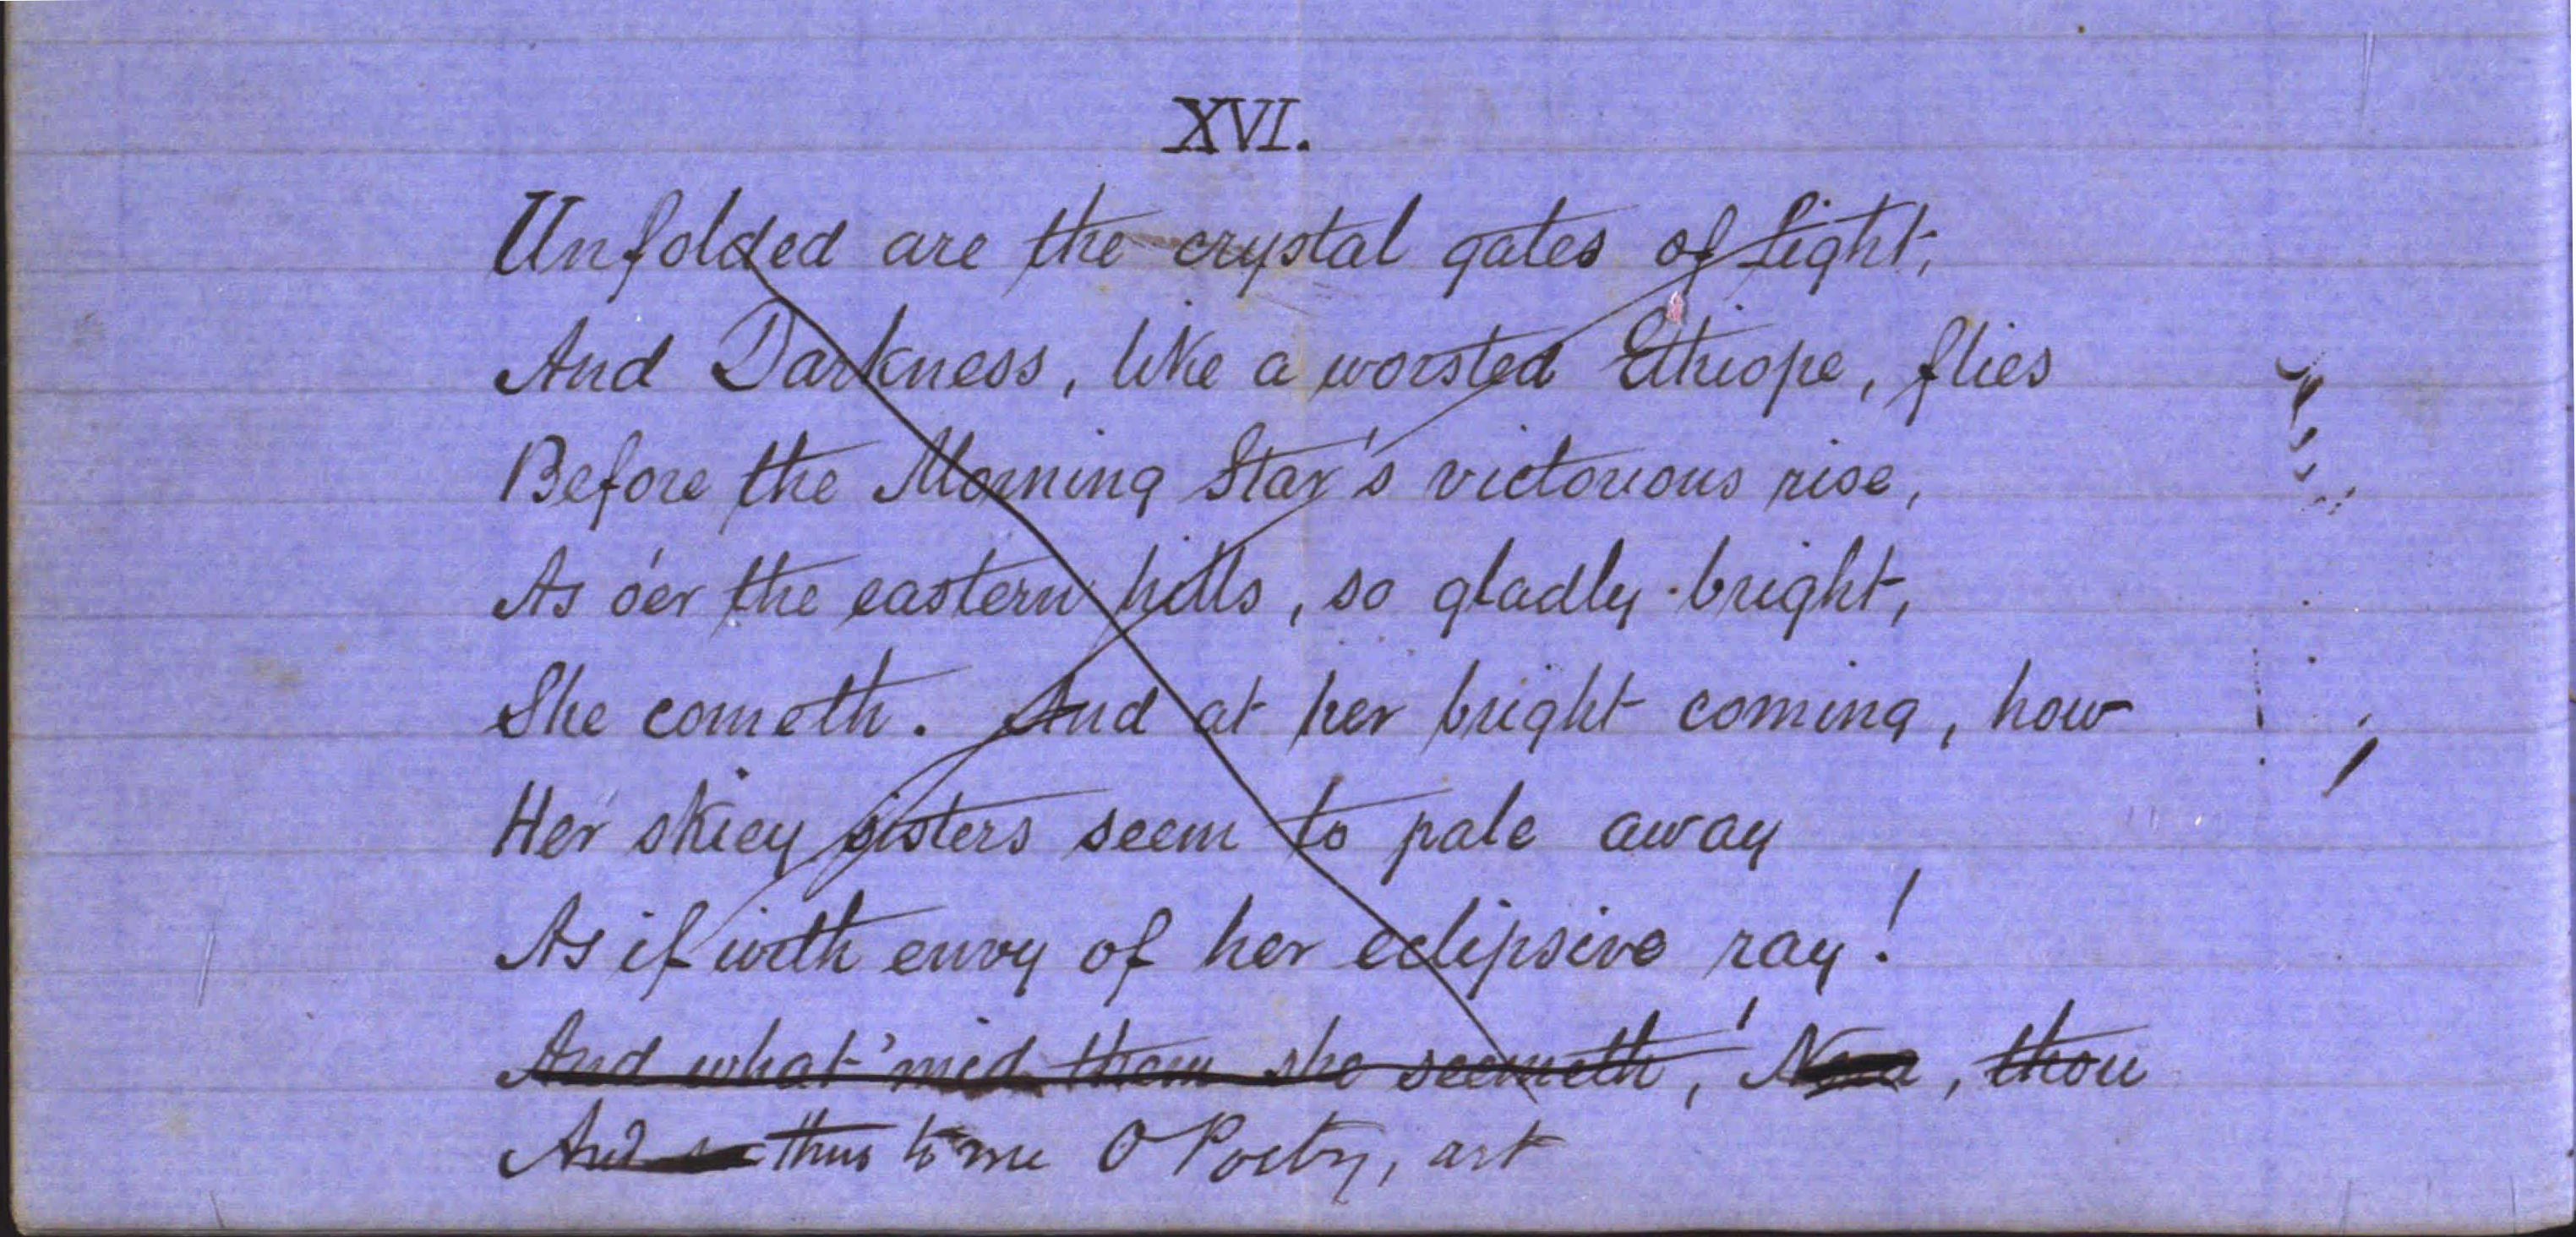 XVI.
Unfolded are the crystal gates of Light,
And Darkness, like a worsted Ethiope, flies
Before the Morning Star's victorious rise,
As o'er the eastern hills, so gladly-bright,
She cometh. And at her bright coming, how
Her skiey sisters seem to pale away
As if with envy of her eclipsive ray!
And what 'mid them she seemeth, , thou
And thus to me O Poetry, art